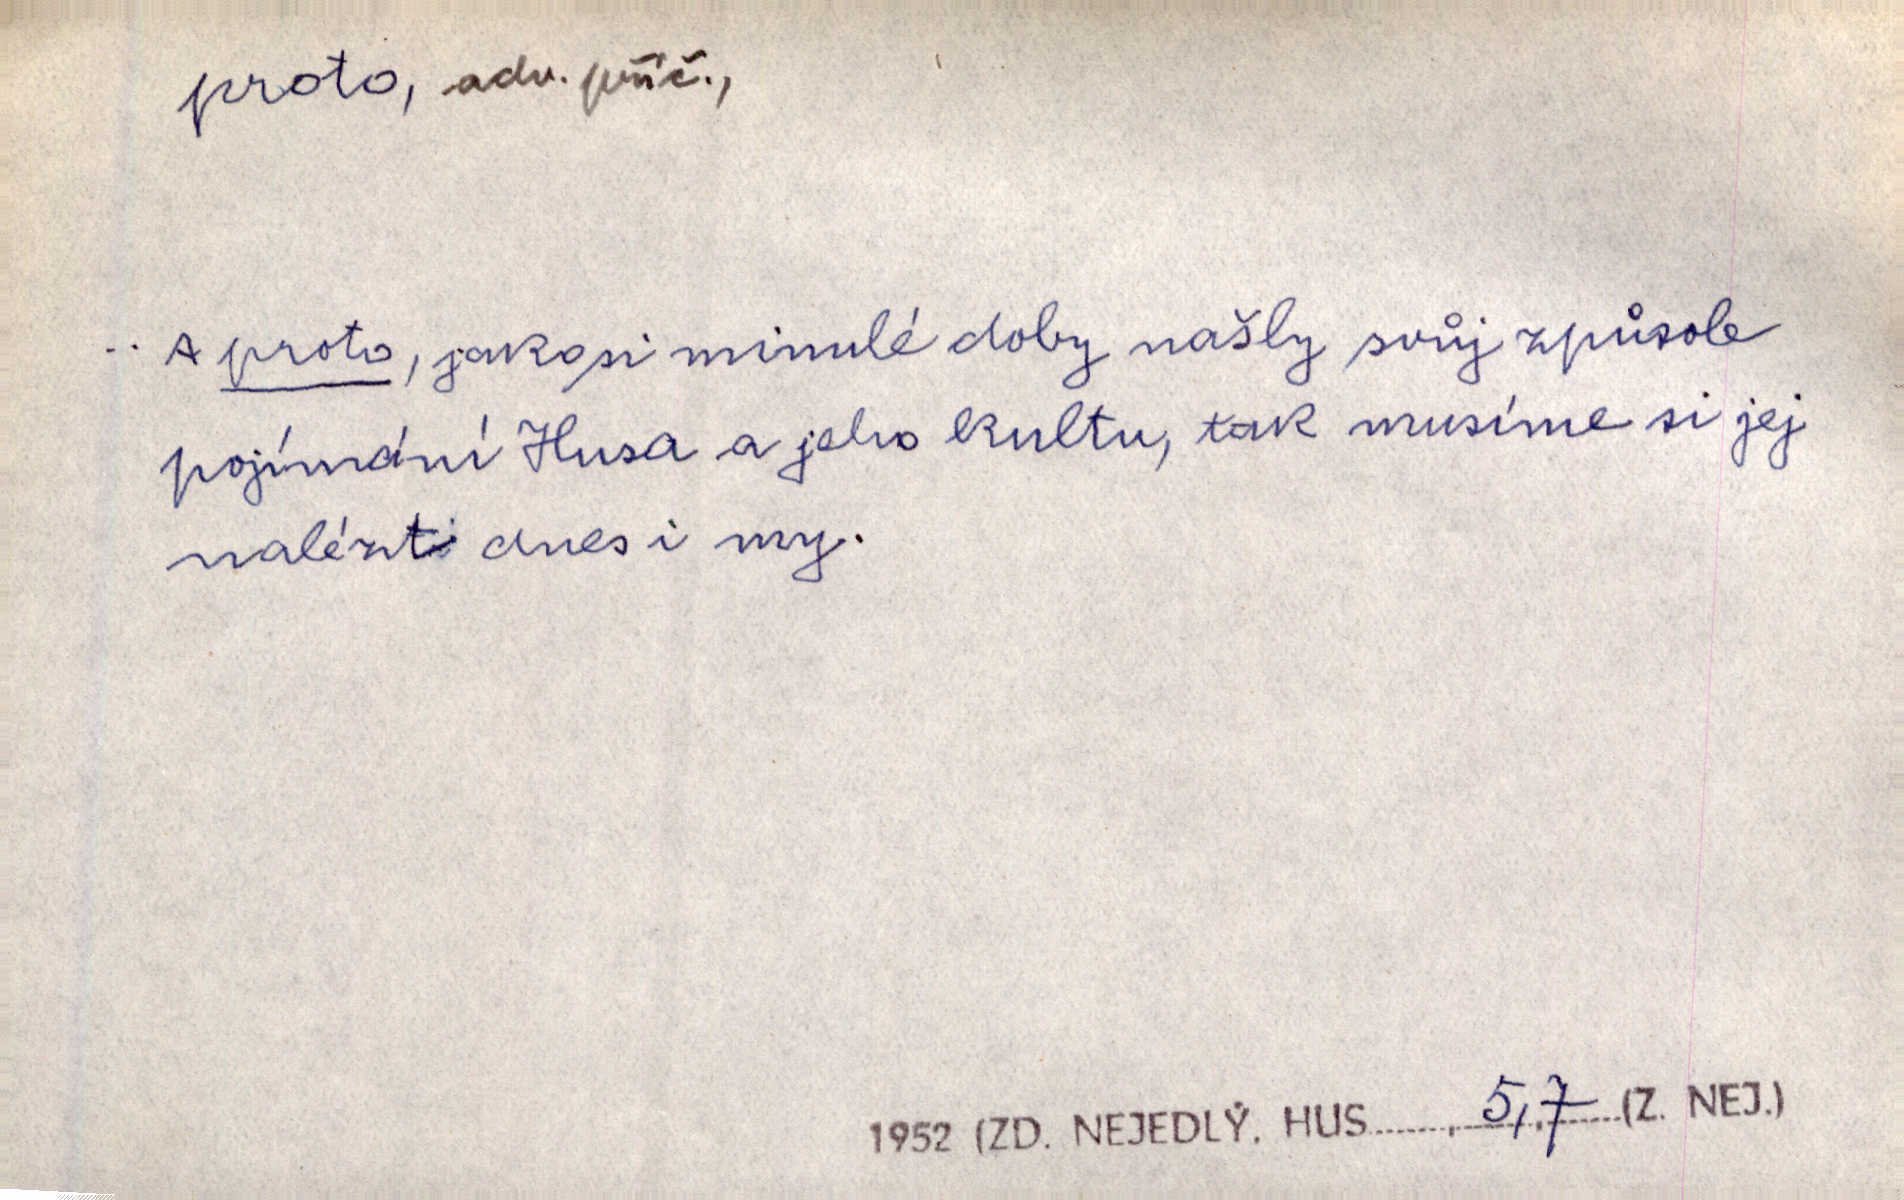 proto, adv. příč.,
.. A proto, jako si minulé doby našly svůj způsob
pojímání Husa a jeho kultu, tak musíme si jej
nalézti dnes i my.
1952 (ZD. NEJEDLÝ, HUS......,5,7......(Z. NEJ.)